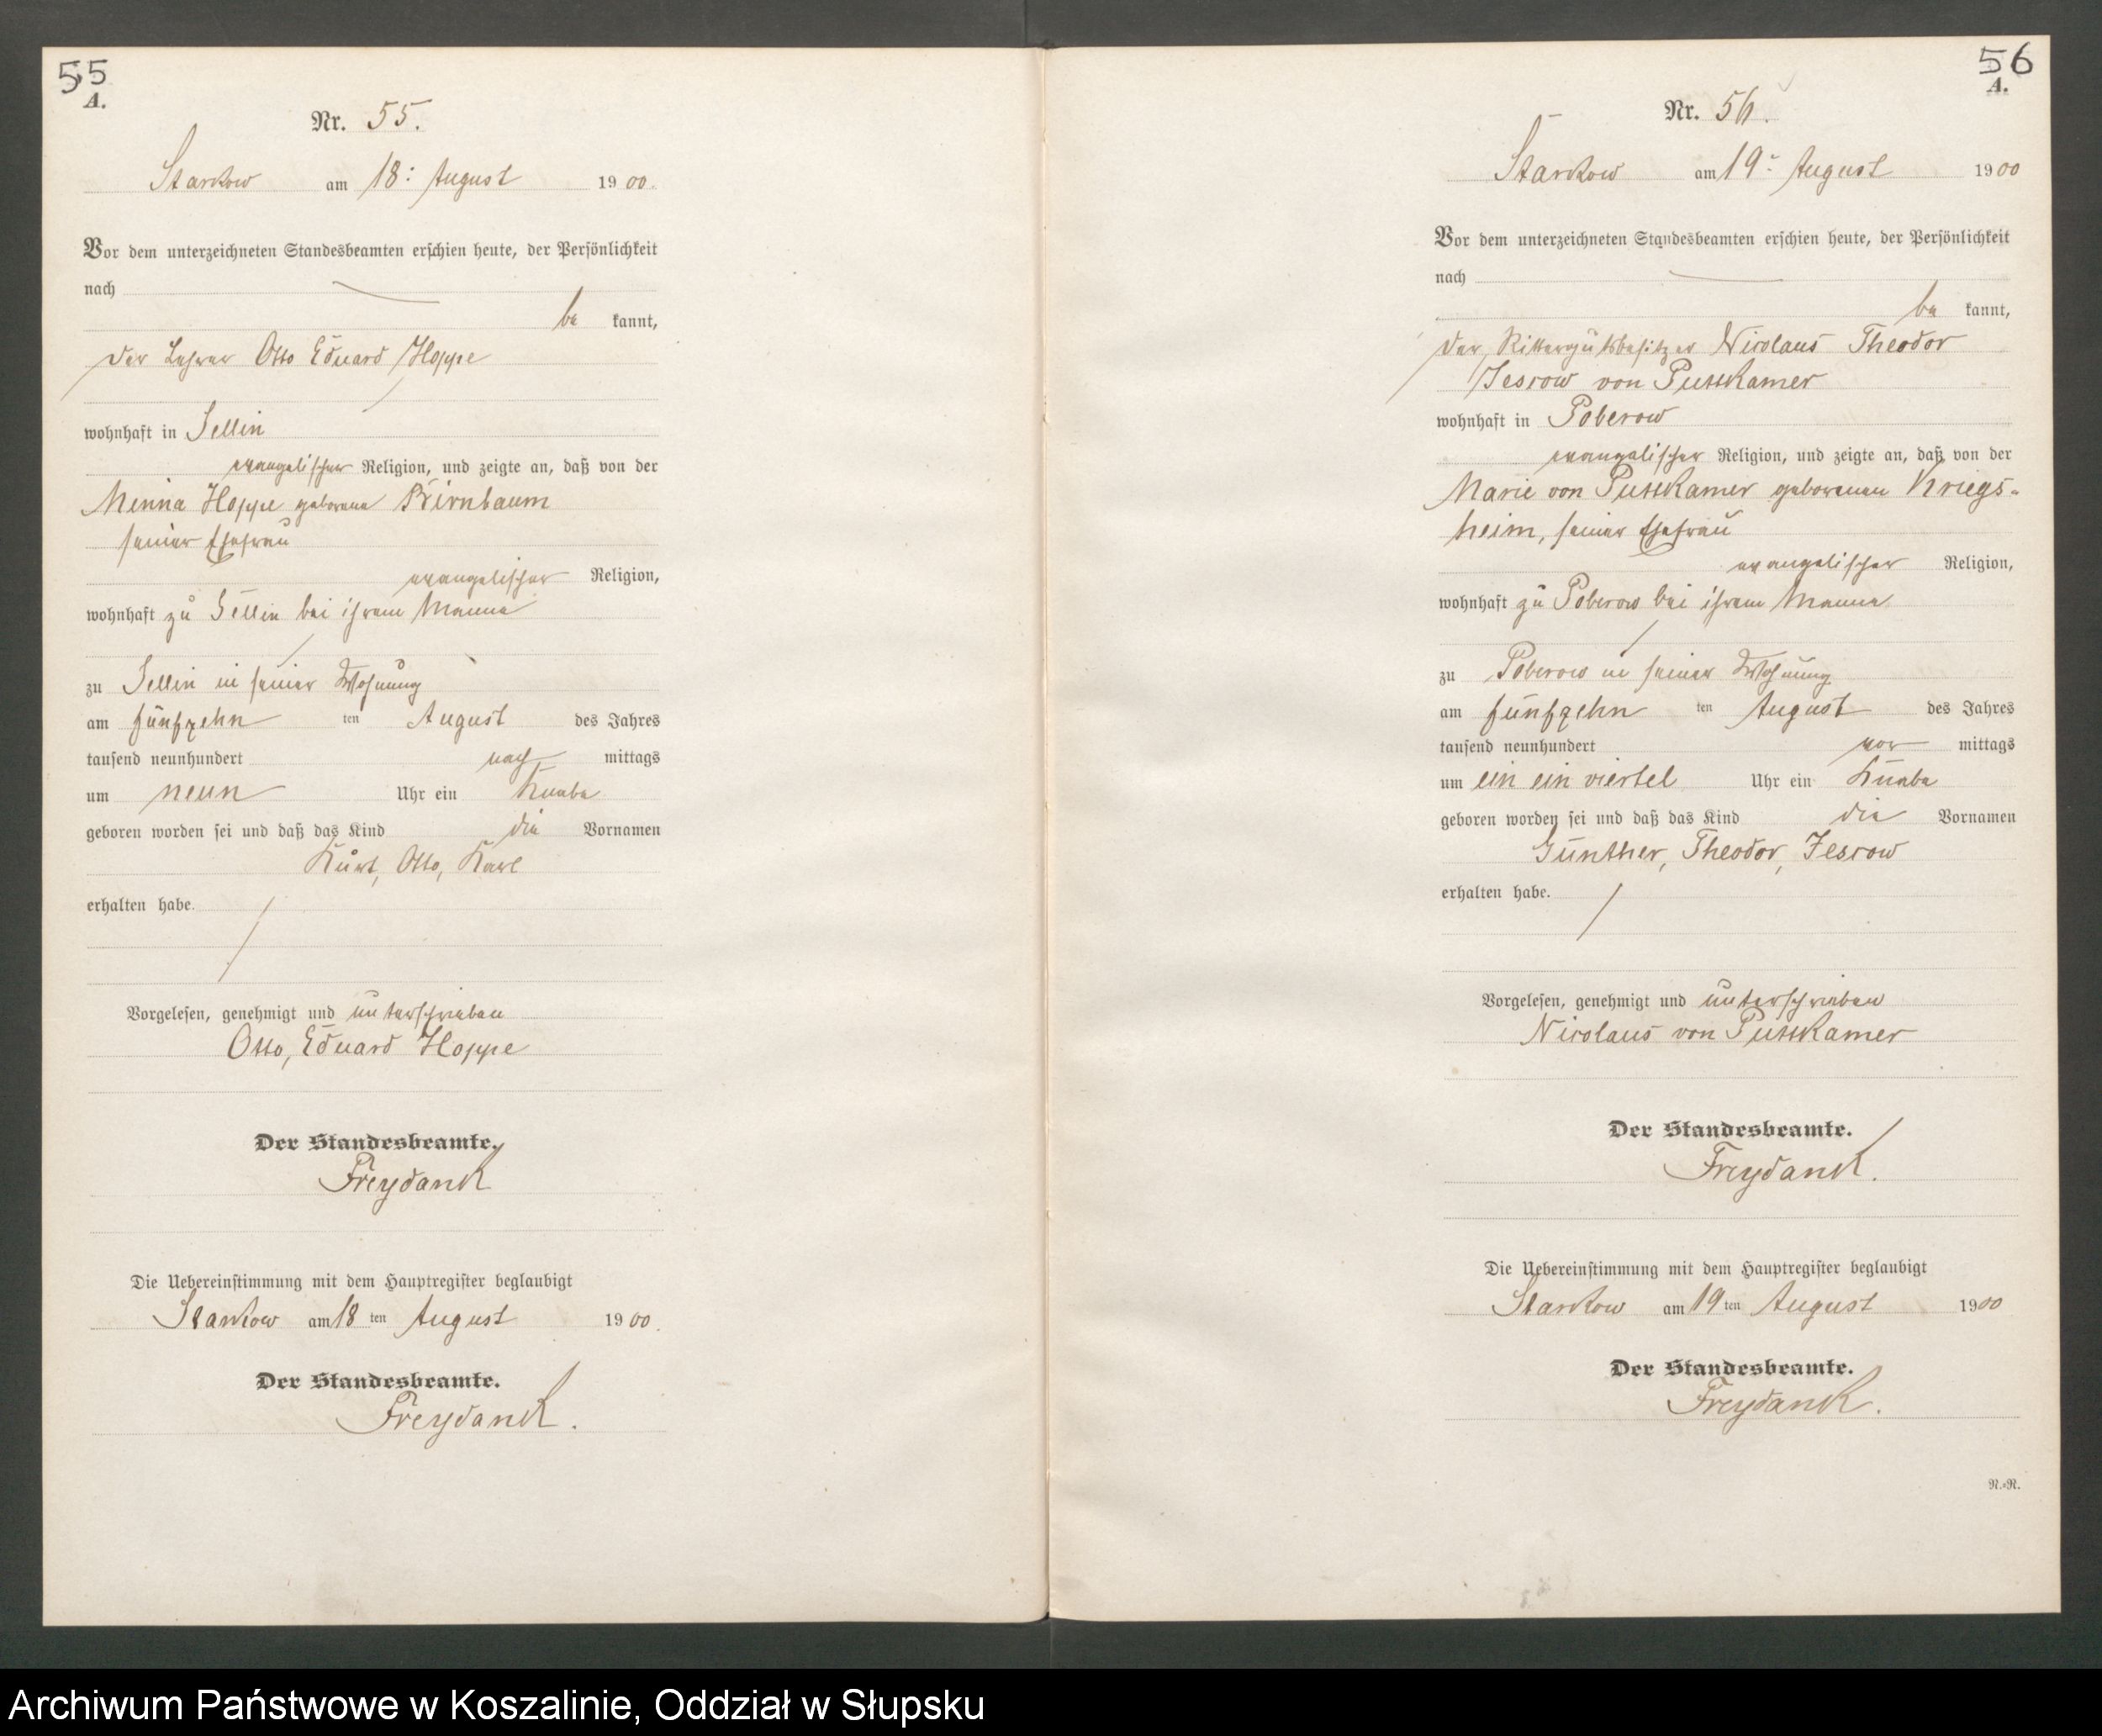 55
A.
Nr. 55.
Starkow am 18: August 1900.
Vor dem unterzeichneten Standesbeamten erschien heute, der Persönlichkeit
nach
be kannt,
der Lehrer Otto Eduard Hoppe
wohnhaft in Sellin
evangelischer Religion, und zeigte an, daß von der
Minna Hoppe geborene Birnbaum
seiner Ehefrau
evangelischer Religion,
wohnhaft zu Sellin bei ihrem Manne
zu Sellin in seiner Wohnung
am fünfzehn ten August des Jahres
tausend neunhundert nach mittags
um neun Uhr ein Knabe
geboren worden sei und daß das Kind die Vornamen
Kurt, Otto, Karl
erhalten habe.
Vorgelesen, genehmigt und unterschrieben
Otto, Eduard Hoppe
Der Standesbeamte.
Freydank
Die Uebereinstimmung mit dem Hauptregister beglaubigt
Starkow am 18 ten August 1900.
Der Standesbeamte.
Freydank.
56
A.
Nr. 56.
Starkow am 19: August 1900
Vor dem unterzeichneten Standesbeamten erschien heute, der Persönlichkeit
nach
be kannt,
der Rittergutsbesitzer Nicolaus Theodor
Jescow von Puttkamer
wohnhaft in Poberow
evangelischer Religion, und zeigte an, daß von der
Marie von Puttkamer geborenen Kriegs-
heim, seiner Ehefrau
evangelischer Religion,
wohnhaft zu Poberow bei ihrem Manne
zu Poberow in seiner Wohnung
am fünfzehn ten August des Jahres
tausend neunhundert vor mittags
um ein ein viertel Uhr ein Knabe
geboren worden sei und daß das Kind die Vornamen
Günther, Theodor, Jescow
erhalten habe.
Vorgelesen, genehmigt und unterschrieben
Nicolaus von Puttkamer
Der Standesbeamte.
Freydank.
Die Uebereinstimmung mit dem Hauptregister beglaubigt
Starkow am 19 ten August 1900
Der Standesbeamte.
Freydank.
R.=R.
Archiwum Państwowe w Koszalinie, Oddział w Słupsku